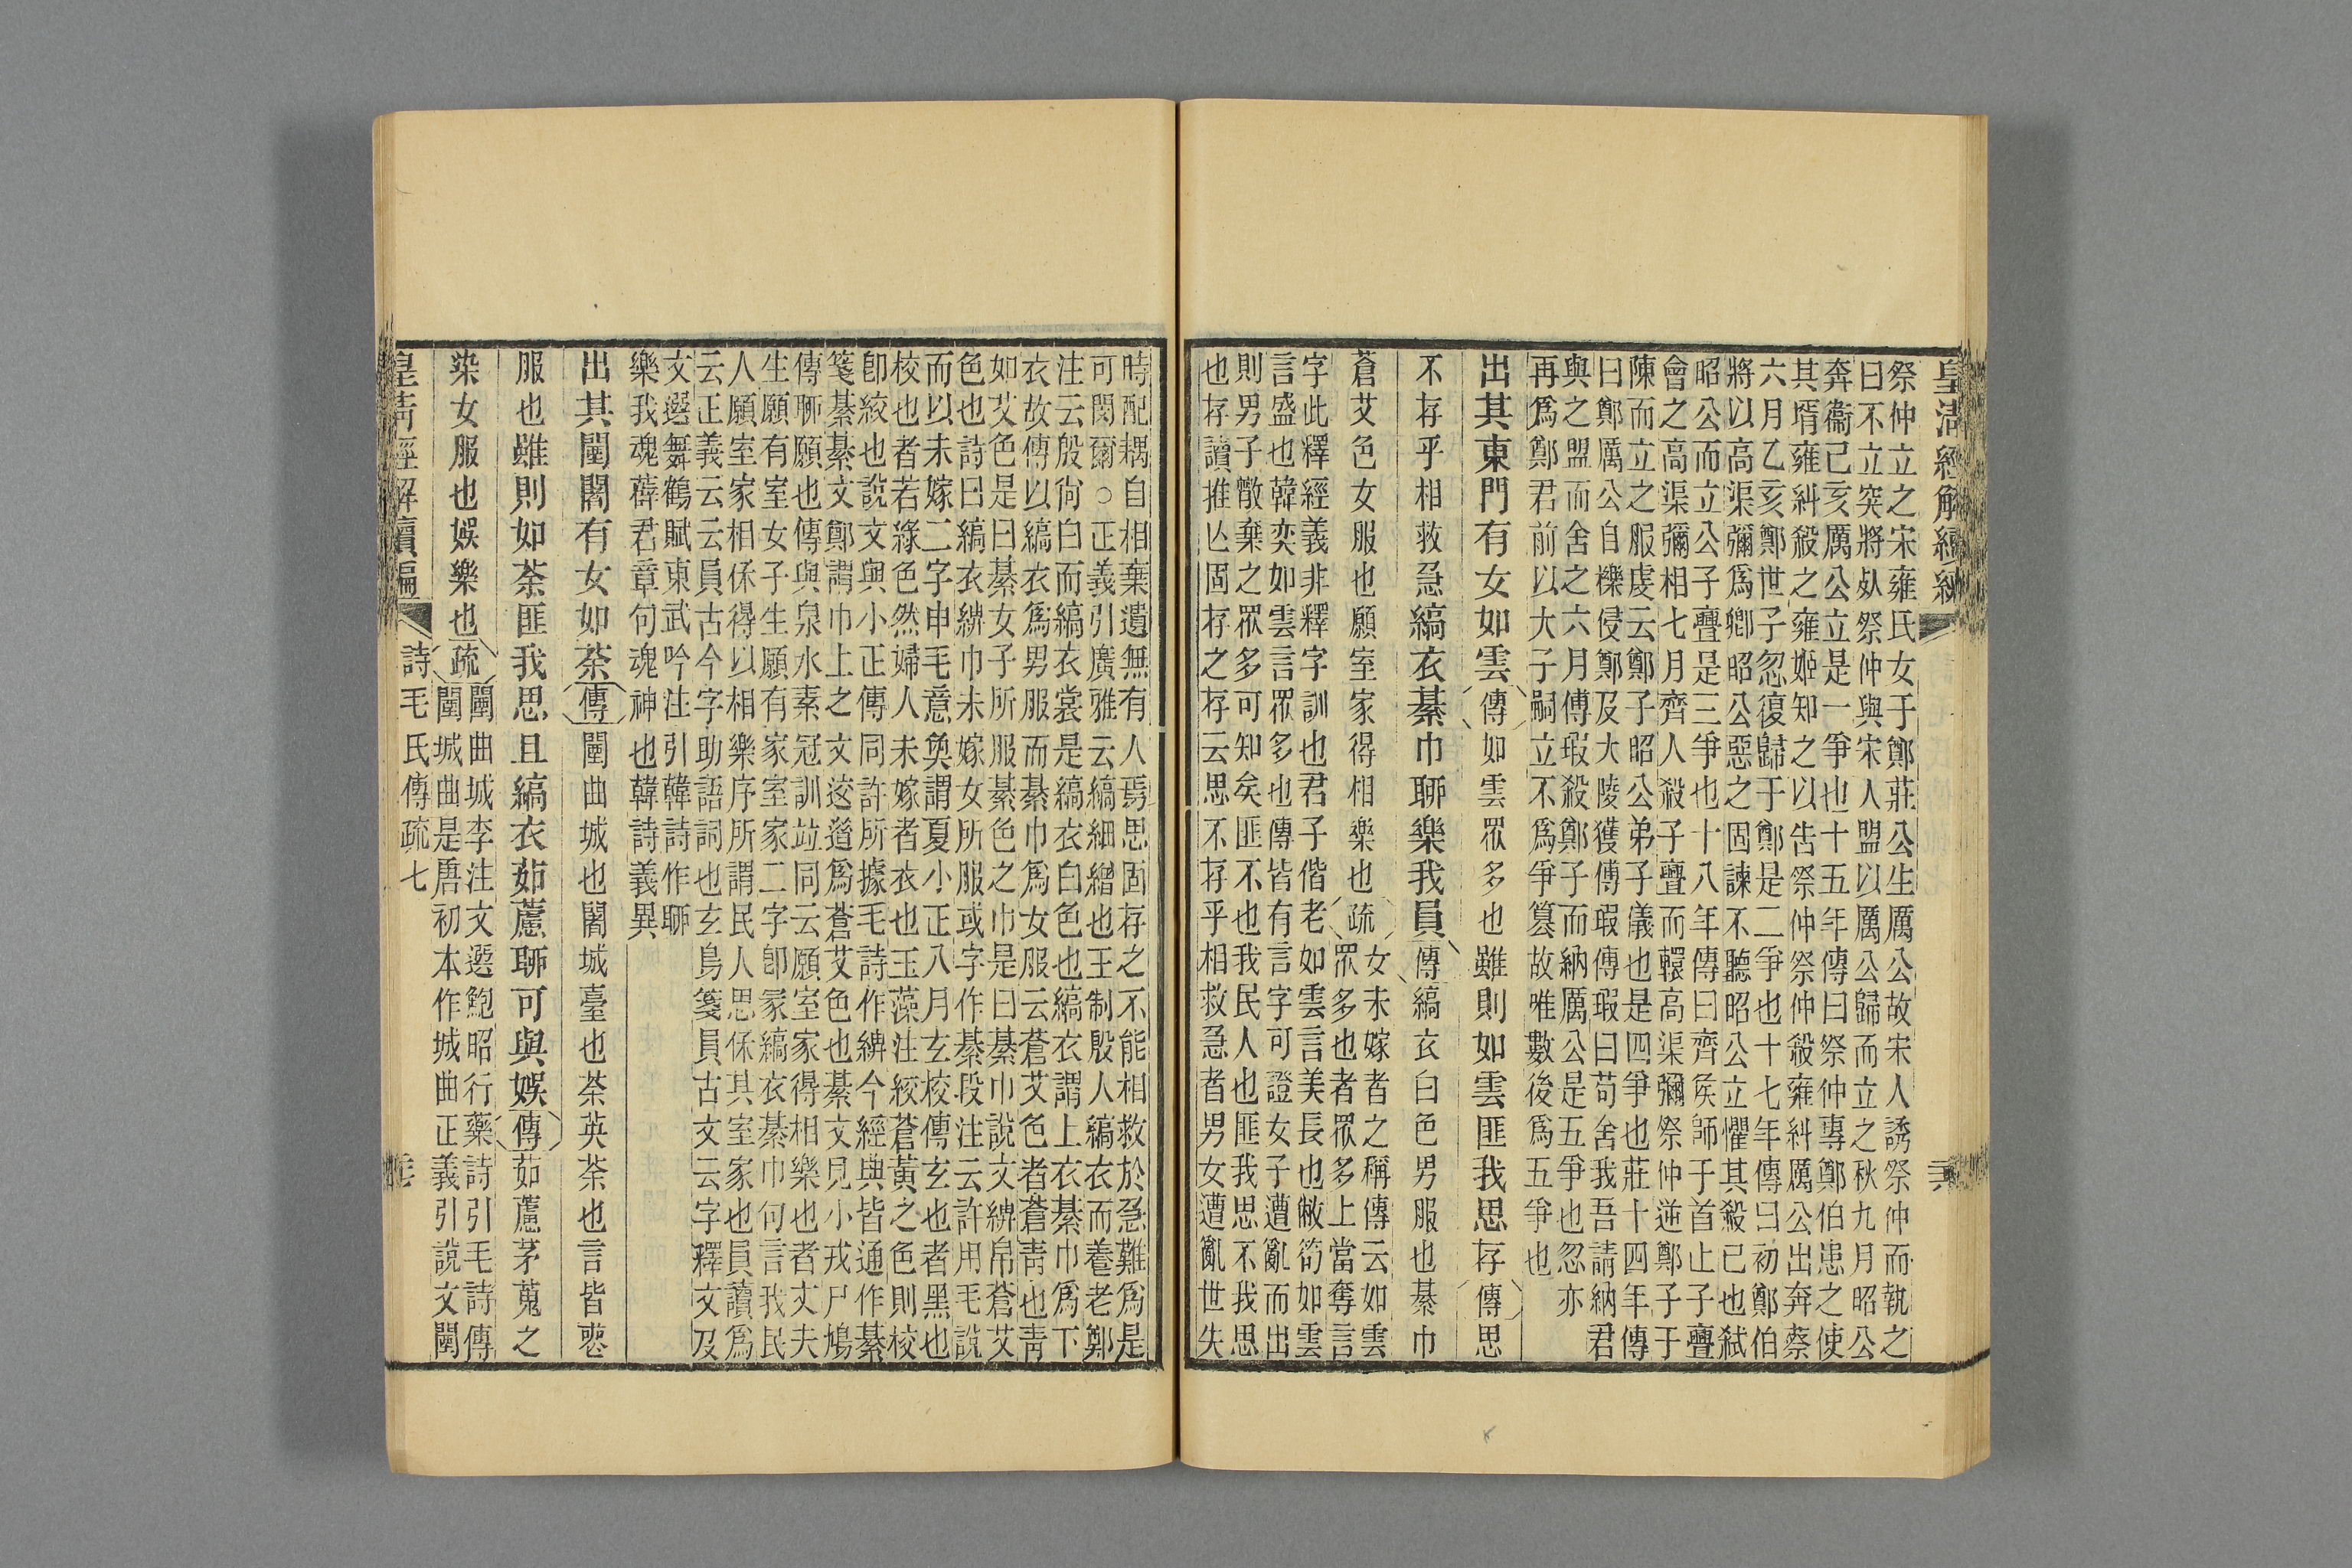 皇清經解續編
祭仲立之宋雍氏女于鄭莊公生厲公故宋人誘祭仲而執之
曰不立突將𣦸祭仲與宋人盟以厲公歸而立之秋九月昭公
奔衞己亥厲公立是一爭也十五年傳曰祭仲專鄭伯患之使
其壻雍糾殺之雍姬知之以告祭仲祭仲殺雍糾厲公出奔蔡
六月乙亥鄭世子忽復歸于鄭是二爭也十七年傳曰初鄭伯
將以高渠彌爲卿昭公惡之固諫不聽昭公立懼其殺已也弑
昭公而立公子亹是三爭也十八年傳曰齊侯師于首止子亹
會之高渠彌相七月齊人殺子亹而轘高渠彌祭仲逆鄭子于
陳而立之服虔云鄭子昭公弟子儀也是四爭也莊十四年傳
曰鄭厲公自櫟侵鄭及大陵獲傅瑕傅瑕曰苟舍我吾請納君
與之盟而舍之六月傅瑕殺鄭子而納厲公是五爭也忽亦
再爲鄭君前以大子嗣立不爲爭篡故唯數後爲五爭也
出其東門有女如雲傳如雲眾多也雖則如雲匪我思存傳思
不存乎相救急縞衣綦巾聊樂我員傳縞衣白色男服也綦巾
蒼艾色女服也願室家得相樂也疏女未嫁者之稱傳云如雲
眾多也者眾多上當奪言
字此釋經義非釋字訓也君子偕老如雲言美長也敝笱如雲
言盛也韓奕如雲言眾多也傳皆有言字可證女子遭亂而出
則男子憿棄之眾多可知矣匪不也我民人也匪我思不我思
也存讀推亾固存之存云思不存乎相救急者男女遭亂世失
時配耦自相棄遺無有人焉思固存之不能相救於急難爲是
可閔爾○正義引廣雅云縞細繒也王制殷人縞衣而養老鄭
注云殷尙白而縞衣裳是縞衣白色也縞衣謂上衣綦巾爲下
衣故傳以縞衣爲男服而綦巾爲女服云蒼艾色者蒼青也青
如艾色是曰綦女子所服綦色之巾是曰綦巾說文綥帛蒼艾
色也詩曰縞衣綥巾未嫁女所服或字作綦段注云許用毛說
而以未嫁二字申毛意奐謂夏小正八月玄校傳玄也者黑也
校也者若綠色然婦人未嫁者衣也玉藻注絞蒼黃之色則校
卽絞也說文與小正傳同許所據毛詩作綥今經典皆通作綦
箋綦綦文鄭謂巾上之文迻道爲蒼艾色也綦文見小戎尸鳩
傳聊願也傳與泉水素冠訓竝同云願室家得相樂也者丈夫
生願有室女子生願有家室家二字卽家縞衣綦巾句言我民
人願室家相保得以相樂序所謂民人思保其室家也員讀爲
云正義云云員古今字助語詞也玄鳥箋員古文云字釋文及
文選舞鶴賦東武吟注引韓詩作聊
樂我魂薛君章句魂神也韓詩義異
出其闉闍有女如荼傳闉曲城也闍城臺也荼英荼也言皆䘮
服也雖則如荼匪我思且縞衣茹藘聊可與娛傳茹藘茅蒐之
染女服也娛樂也疏闉曲城李注文選鮑昭行藥詩引毛詩傳
闉城曲是唐初本作城曲正義引說文闉
皇清經解續編 詩毛氏傳疏七